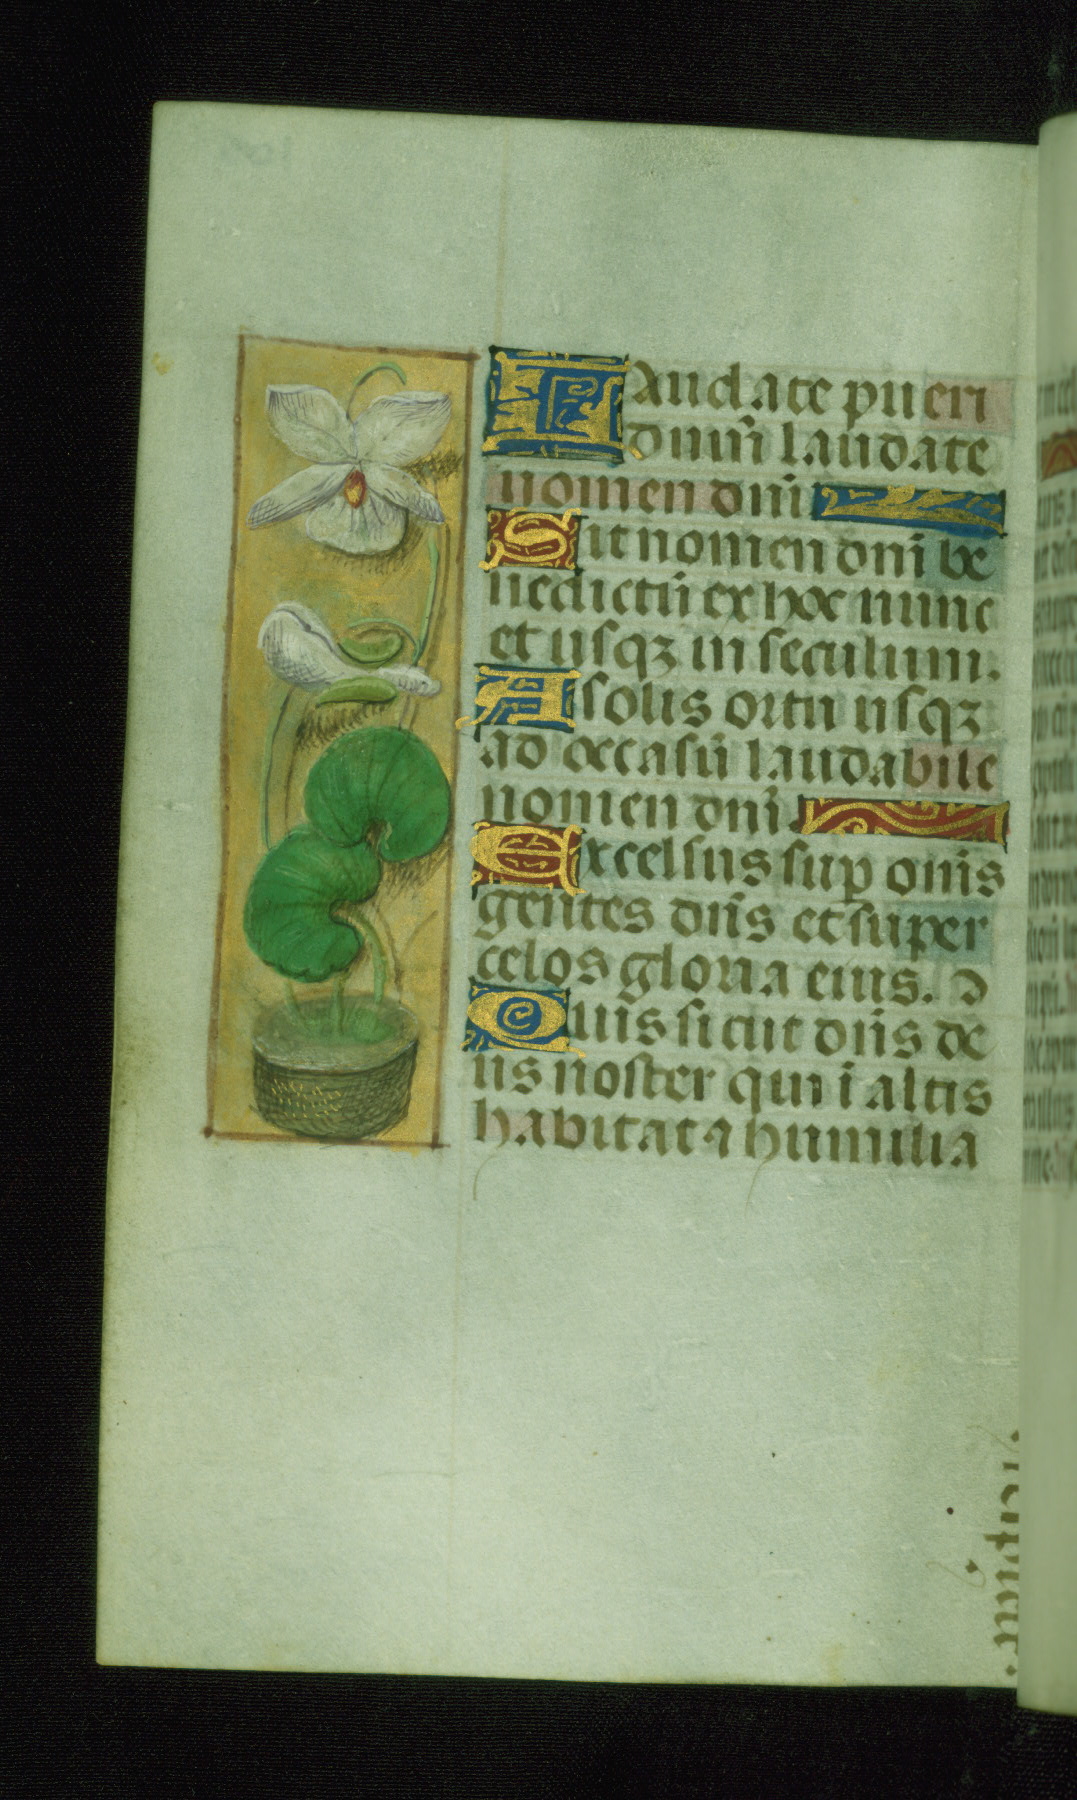 Laudate pueri
dominū laudate
nomen dnī
Sit nomen dnī be
nedictū ex hoc nunc
et usqꝫ in seculum.
A solis ortu usqꝫ
ad occasū laudabile
nomen dnī
Excelsus suꝑ om̄s
gentes dn̄s et super
celos gloria eius. 
Quis sicut dn̄s de
us noster qui ī altis
habitat ⁊ humilia